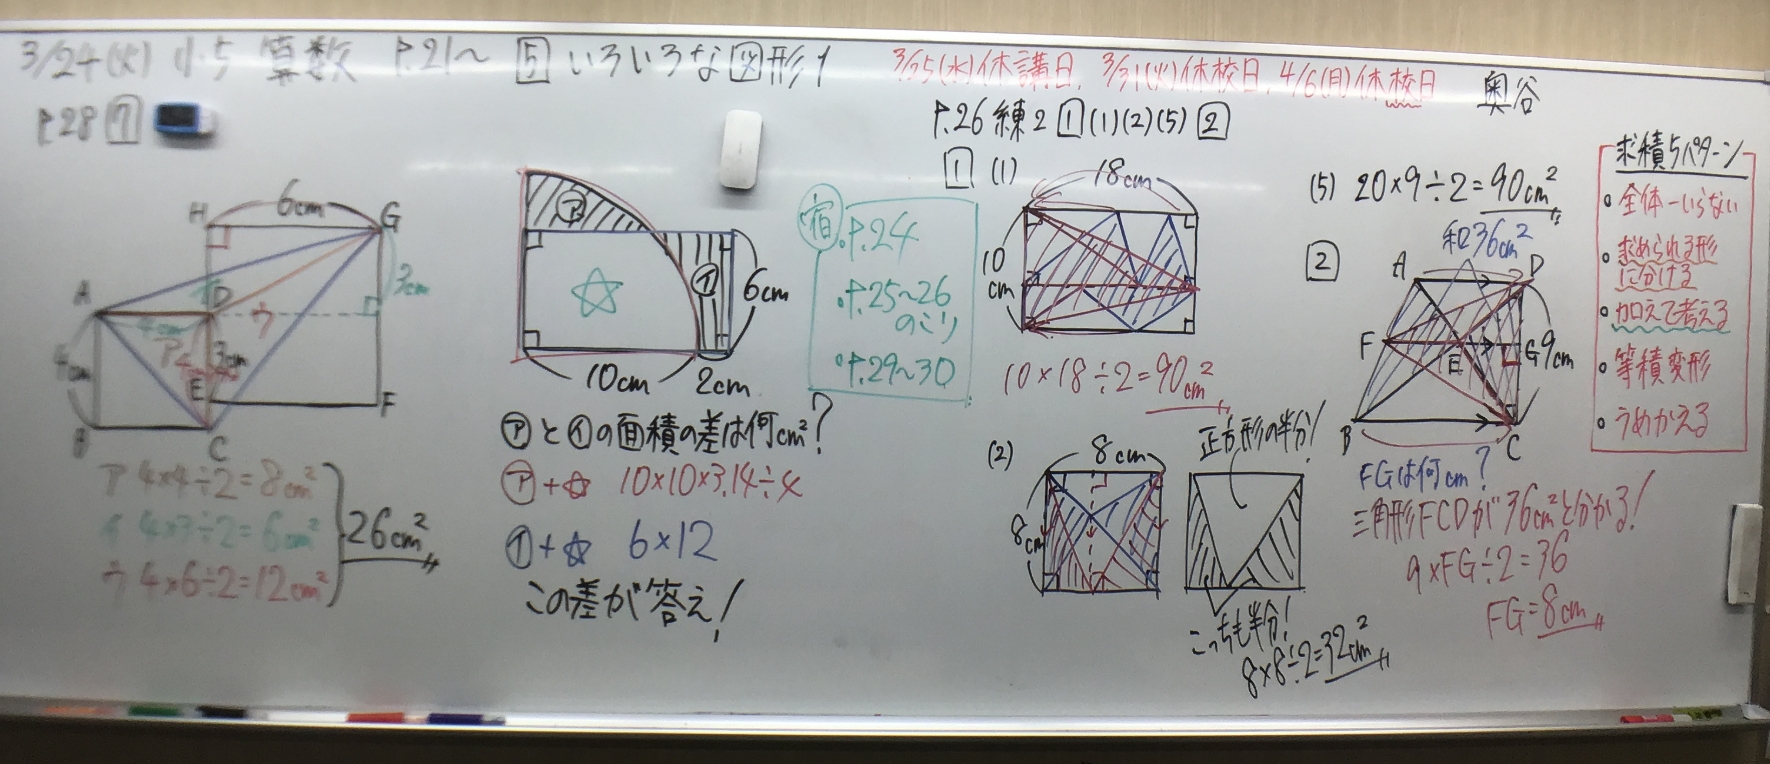 3/24(火) 小5 算数 P.21〜 5 いろいろな図形1
3/25(水)休講日, 3/31(火)休校日, 4/6(月)休校日
奥谷
P.28 7
H 6cm G
A D 3cm
4cm ウ
ア イ 3cm
4cm E F
B C
ア 4×4÷2=8cm²
イ 4×3÷2=6cm²
ウ 4×6÷2=12cm²
26cm²
ア
イ
6cm
10cm 2cm
アとイの面積の差は何cm²?
ア+☆ 10×10×3.14÷4
イ+☆ 6×12
この差が答え!
宿
・P.24
・P.25〜26
のこり
・P.29〜30
P.26 練2 1(1)(2)(5) 2
1 (1)
18cm
10
cm
10×18÷2=90cm²
(2)
8cm
8cm
正方形の半分!
こっちも半分!
8×8÷2=32cm²
(5) 20×9÷2=90cm²
和36cm²
2
A D
F E G 9cm
B C
FGは何cm?
三角形FCDが36cm²と分かる!
9×FG÷2=36
FG=8cm
求積5パターン
・全体-いらない
・求められる形
に分ける
・加えて考える
・等積変形
・うめかえる